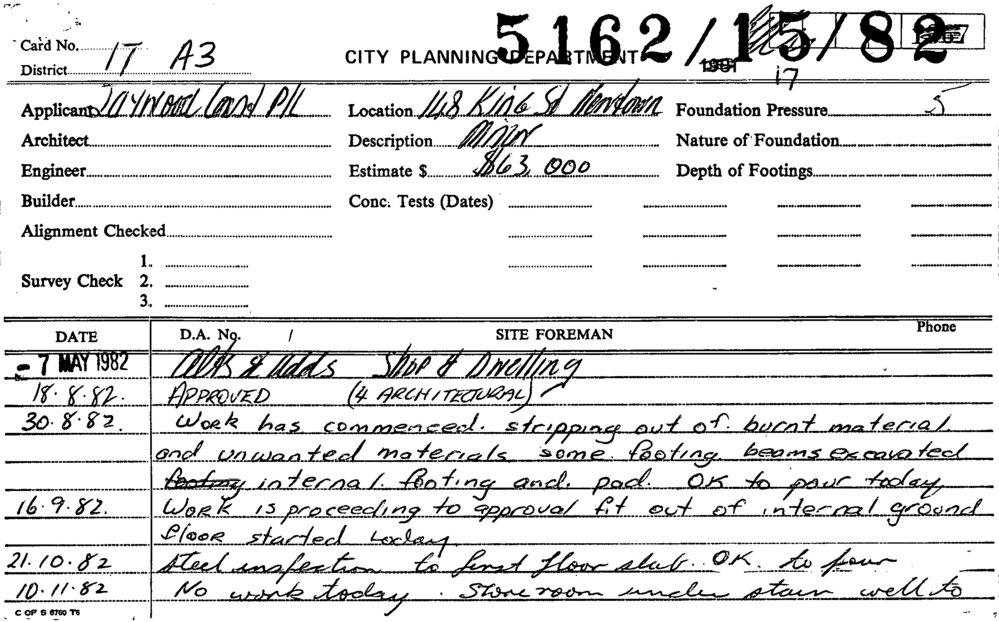 5162/15/82
Card No. 17 A3
CITY PLANNING DEPARTMENT
1981
17
District
Applicant Jaywood Const P/L Location 148 King St Newtown Foundation Pressure 5
Architect Description Minor Nature of Foundation
Engineer Estimate $ $63,000 Depth of Footings
Builder Conc. Tests (Dates)
Alignment Checked
1.
Survey Check 2.
3.
DATE D.A. No. / SITE FOREMAN Phone
- 7 MAY 1982 Alts & Adds Shop & Dwelling
18.8.82. APPROVED (4 ARCHITECTURAL)
30.8.82. Work has commenced. stripping out of burnt material
and unwanted materials some footing beams excavated
footing internal footing and pad. OK to pour today,
16.9.82. Work is proceeding to approval fit out of internal ground
floor started today
21.10.82 Steel inspection to first floor slab. OK. to pour
10.11.82 No work today. Store room under stair well to
C OP S 6760 T6